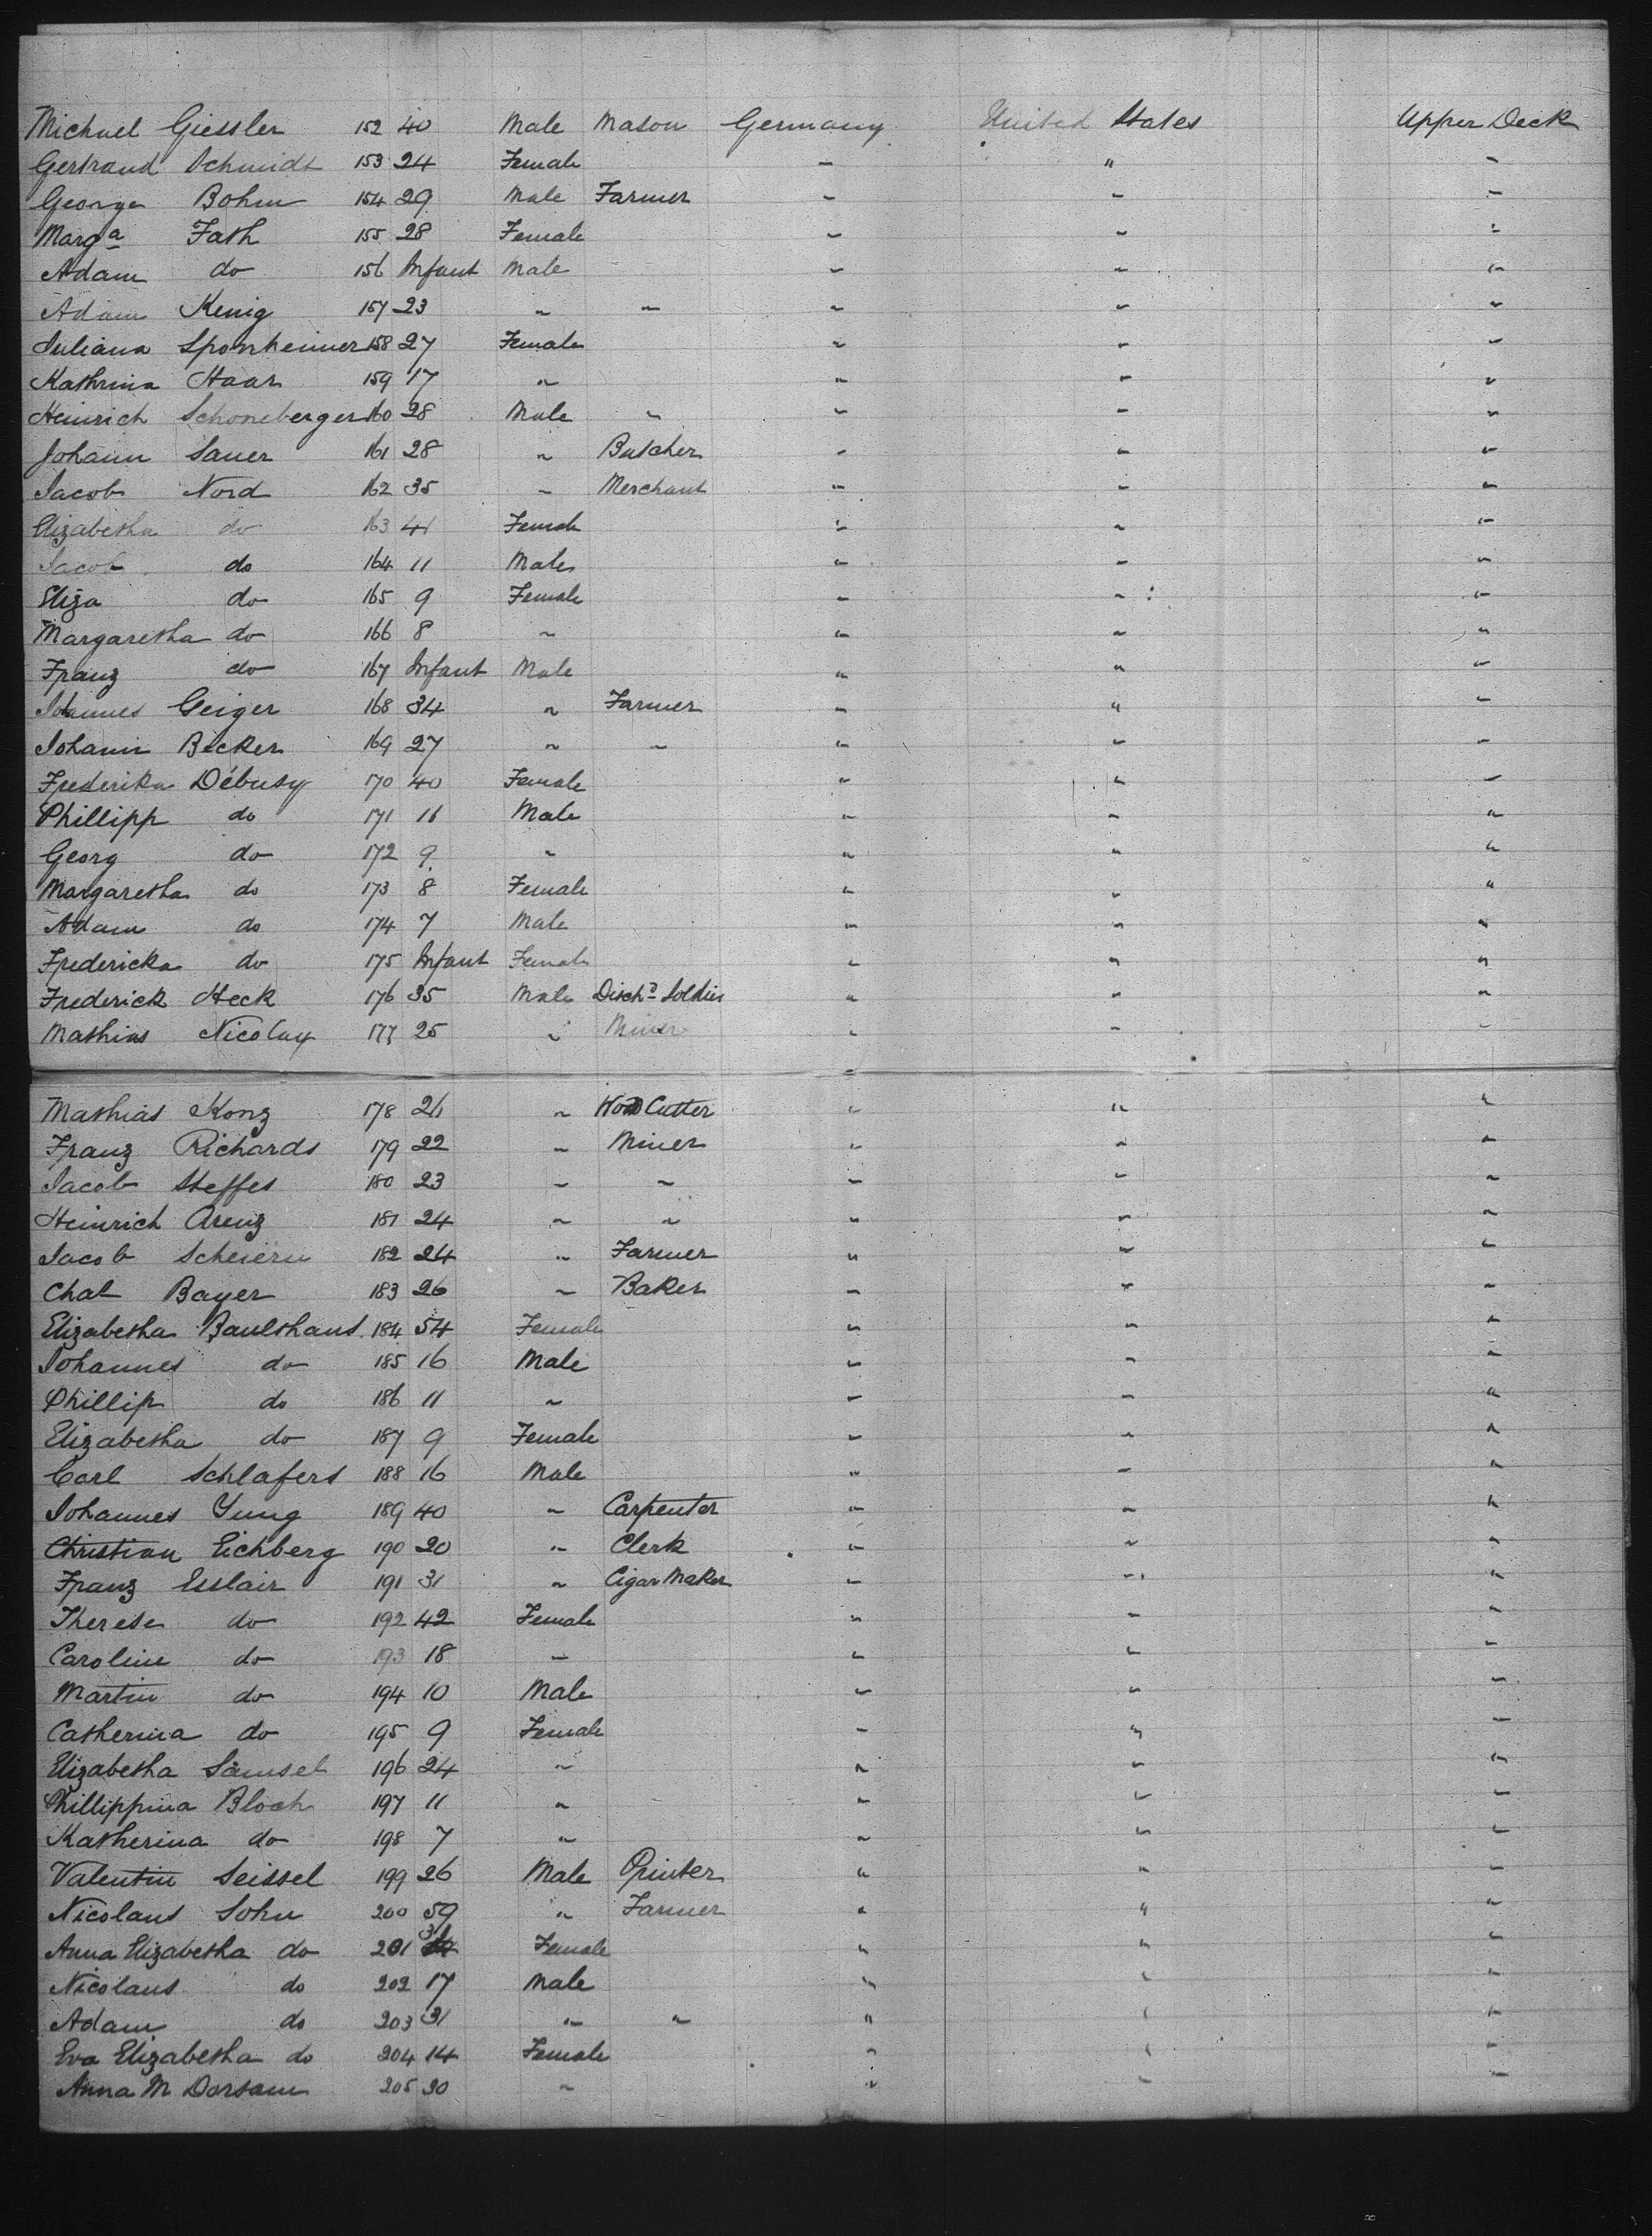 Michael Giessler 152 40 Male Mason Germany United States Upper Deck
Gertraud Schmidt 153 24 Female " " "
George Bohm 154 29 Male Farmer " " "
Marga Fath 155 28 Female " " "
Adam do 156 Infant Male " " "
Adam Kenig 157 23 " " " " "
Juliana Sponheimer 158 27 Female " " "
Kathrina Haar 159 17 " " " "
Heinrich Schoneberger 160 28 Male " " " "
Johann Sauer 161 28 " Butcher " " "
Jacob Nord 162 35 " Merchant " " "
Elizabetha do 163 41 Female " " "
Jacob do 164 11 Male " " "
Eliza do 165 9 Female " " "
Margaretha do 166 8 " " " "
Franz do 167 Infant Male " " "
Johannes Geiger 168 34 " Farmer " " "
Johann Becker 169 27 " " " " "
Frederika Débusy 170 40 Female " " "
Phillipp do 171 11 Male " " "
Georg do 172 9 " " " "
Margaretha do 173 8 Female " " "
Adam do 174 7 Male " " "
Fredericka do 175 Infant Female " " "
Frederick Heck 176 35 Male Dischd Soldier " " "
Mathias Nicolay 177 25 " Miner " " "
Mathias Konz 178 26 " Wood Cutter " " "
Franz Richards 179 22 " Miner " " "
Jacob Steffes 180 23 " " " " "
Heinrich Arenz 181 24 " " " " "
Jacob Scheiern 182 24 " Farmer " " "
Chat Bayer 183 26 " Baker " " "
Elizabetha Baulthaus 184 54 Female " " "
Johannes do 185 16 Male " " "
Phillip do 186 11 " " " "
Elizabetha do 187 9 Female " " "
Carl Schlafers 188 16 Male " " "
Johannes Yung 189 40 " Carpenter " " "
Christian Eichberg 190 20 " Clerk " " "
Franz Esslair 191 31 " Cigar Maker " " "
Therese do 192 42 Female " " "
Caroline do 193 18 " " " "
Martin do 194 10 Male " " "
Catherina do 195 9 Female " " "
Elizabetha Samsel 196 24 " " " "
Phillippina Bloch 197 11 " " " "
Katherina do 198 7 " " " "
Valentin Seissel 199 26 Male Printer " " "
Nicolaus Sohn 200 59 " Farmer " " "
Anna Elizabetha do 201 Female " " "
Nicolaus do 202 17 Male " " "
Adam do 203 31 " " " " "
Eva Elizabetha do 204 14 Female " " "
Anna M Dorsam 205 20 " " " "